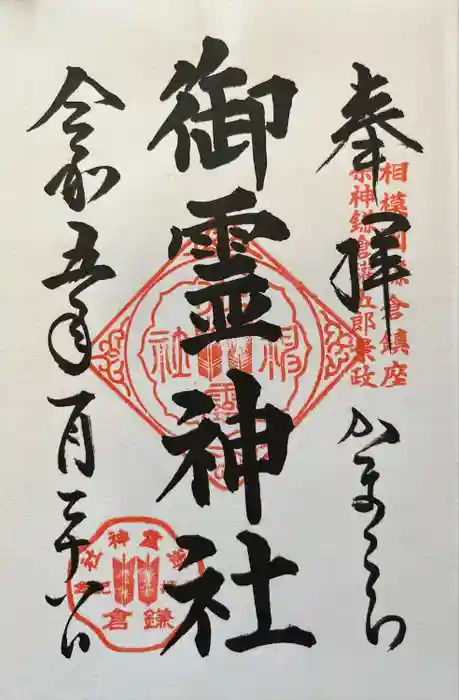 奉拝
相模国鎌倉鎮座
祭神鎌倉権五郎景政
かまくら
御霊神社
令和五年一月
御霊神社
鎌倉